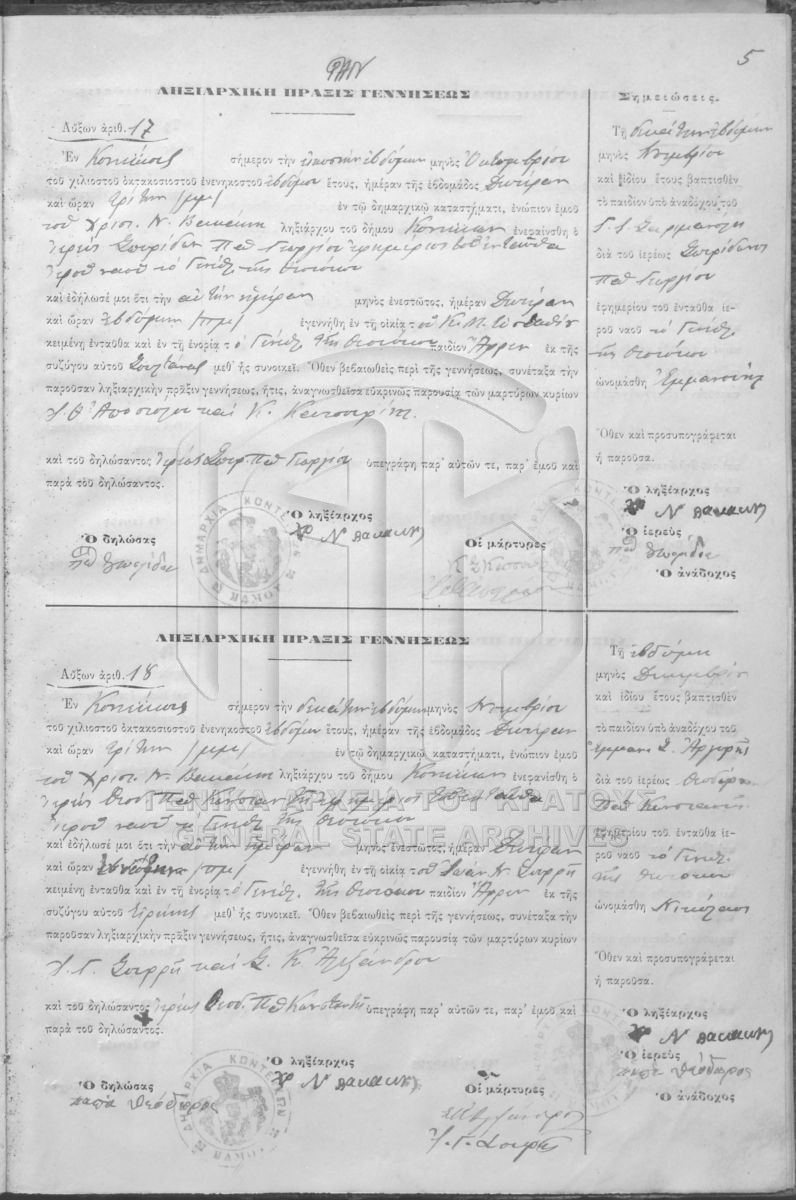 5
ΦΑΝ
ΛΗΞΙΑΡΧΙΚΗ ΠΡΑΞΙΣ ΓΕΝΝΗΣΕΩΣ
Αὔξων ἀριθ. 17
Ἐν σήμερον τὴν εἰκοστὴν ἑβδόμην μηνὸς Ὀκτωμβρίου
τοῦ χιλιοστοῦ ὀκτακοσιοστοῦ ἐνενηκοστοῦ ἑβδόμου ἔτους, ἡμέραν τῆς ἑβδομάδος Δευτέραν
καὶ ὥραν τρίτην /μμ/ ἐν τῷ δημαρχικῷ καταστήματι, ἐνώπιον ἐμοῦ
τοῦ Χρισ. Ν. Βακάκη ληξιάρχου τοῦ δήμου ἐνεφανίσθη ὁ
ἱερεὺς Σπυρίδων Παπ Γεωργίου ἐφημέριος τοῦ ἐνταῦθα
ἱεροῦ ναοῦ τὸ Γενέθ. τῆς Θεοτόκου
καὶ ἐδήλωσέ μοι ὅτι τὴν αὐτὴν ἡμέραν μηνὸς ἐνεστῶτος, ἡμέραν Δευτέραν
καὶ ὥραν ἑβδόμην /πμ/ ἐγεννήθη ἐν τῇ οἰκίᾳ τοῦ Κ. Μ.
κειμένῃ ἐνταῦθα καὶ ἐν τῇ ἐνορίᾳ τὸ Γενέθ. τῆς Θεοτόκου παιδίον Ἄρρεν ἐκ τῆς
συζύγου αὐτοῦ Σουλτάνας μεθ᾽ ἧς συνοικεῖ. Ὅθεν βεβαιωθεὶς περὶ τῆς γεννήσεως, συνέταξα τὴν
παροῦσαν ληξιαρχικὴν πρᾶξιν γεννήσεως, ἥτις, ἀναγνωσθεῖσα εὐκρινῶς παρουσίᾳ τῶν μαρτύρων κυρίων
Ἀποστόλου καὶ Κ.
καὶ τοῦ δηλώσαντος ἱερέως Σπυρ. Παπ Γεωργίου ὑπεγράφη παρ᾽ αὐτῶν τε, παρ᾽ ἐμοῦ καὶ
παρὰ τοῦ δηλώσαντος.
Ὁ ληξίαρχος
Χρ Ν Βακάκης
Ὁ δηλώσας
Οἱ μάρτυρες
Σημειώσεις.
Τῇ δεκάτῃ ἑβδόμῃ
μηνὸς Νοεμβρίου
καὶ ἰδίου ἔτους βαπτισθὲν
τὸ παιδίον ὑπὸ ἀναδόχου τοῦ
διὰ τοῦ ἱερέως Σπυρίδωνος
Παπ Γεωργίου
ἐφημερίου τοῦ ἐνταῦθα ἱε-
ροῦ ναοῦ τὸ Γενέθ.
τῆς Θεοτόκου
ὠνομάσθη Ἐμμανουήλ
Ὅθεν καὶ προσυπογράφεται
ἡ παροῦσα.
Ὁ ληξίαρχος
Χρ Ν Βακάκης
Ὁ ἱερεὺς
Ὁ ἀνάδοχος
ΛΗΞΙΑΡΧΙΚΗ ΠΡΑΞΙΣ ΓΕΝΝΗΣΕΩΣ
Αὔξων ἀριθ. 18
Ἐν σήμερον τὴν δεκάτην ἑβδόμην μηνὸς Νοεμβρίου
τοῦ χιλιοστοῦ ὀκτακοσιοστοῦ ἐνενηκοστοῦ ἑβδόμου ἔτους, ἡμέραν τῆς ἑβδομάδος Δευτέραν
καὶ ὥραν τρίτην /μμ/ ἐν τῷ δημαρχικῷ καταστήματι, ἐνώπιον ἐμοῦ
τοῦ Χρισ. Ν. Βακάκη ληξιάρχου τοῦ δήμου ἐνεφανίσθη ὁ
ἱερεὺς Θεοδ. Παπ Κωνσταντῆς ἐφημέριος τοῦ ἐνταῦθα
ἱεροῦ ναοῦ τὸ Γενέθ. τῆς Θεοτόκου
καὶ ἐδήλωσέ μοι ὅτι τὴν αὐτὴν ἡμέραν μηνὸς ἐνεστῶτος, ἡμέραν Δευτέραν
καὶ ὥραν /πμ/ ἐγεννήθη ἐν τῇ οἰκίᾳ τοῦ Ἰωάν. Ν. Σοφῆ
κειμένῃ ἐνταῦθα καὶ ἐν τῇ ἐνορίᾳ τὸ Γενέθ. τῆς Θεοτόκου παιδίον Ἄρρεν ἐκ τῆς
συζύγου αὐτοῦ Εἰρήνης μεθ᾽ ἧς συνοικεῖ. Ὅθεν βεβαιωθεὶς περὶ τῆς γεννήσεως, συνέταξα τὴν
παροῦσαν ληξιαρχικὴν πρᾶξιν γεννήσεως, ἥτις, ἀναγνωσθεῖσα εὐκρινῶς παρουσίᾳ τῶν μαρτύρων κυρίων
Ἰ. Γ. Σοφῆ καὶ Σ. Κ. Ἀλεξάνδρου
καὶ τοῦ δηλώσαντος ἱερέως Θεοδ. Παπ Κωνσταντῆ ὑπεγράφη παρ᾽ αὐτῶν τε, παρ᾽ ἐμοῦ καὶ
παρὰ τοῦ δηλώσαντος.
Ὁ ληξίαρχος
Χρ Ν Βακάκης
Ὁ δηλώσας
παπα θεόδορος
Οἱ μάρτυρες
Ἰ. Γ. Σοφῆς
Τῇ ἑβδόμῃ
μηνὸς Δεκεμβρίου
καὶ ἰδίου ἔτους βαπτισθὲν
τὸ παιδίον ὑπὸ ἀναδόχου τοῦ
διὰ τοῦ ἱερέως Θεοδώρου
Παπ Κωνσταντῆ
ἐφημερίου τοῦ ἐνταῦθα ἱε-
ροῦ ναοῦ τὸ Γενέθ.
τῆς Θεοτόκου
ὠνομάσθη Νικόλαος
Ὅθεν καὶ προσυπογράφεται
ἡ παροῦσα.
Ὁ ληξίαρχος
Χρ Ν Βακάκης
Ὁ ἱερεὺς
παπα θεόδορος
Ὁ ἀνάδοχος
ΓΕΝΙΚΑ ΑΡΧΕΙΑ ΤΟΥ ΚΡΑΤΟΥΣ
GENERAL STATE ARCHIVES